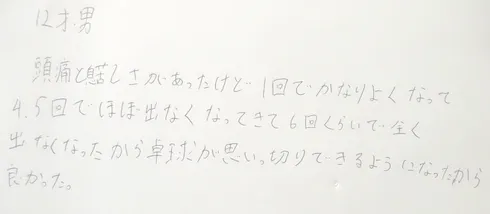 12才.男
頭痛と息苦しさがあったけど1回でかなりよくなって
4.5回でほぼ出なくなってきて6回くらいで全く
出なくなったから卓球が思いっ切りできるようになったから
良かった。